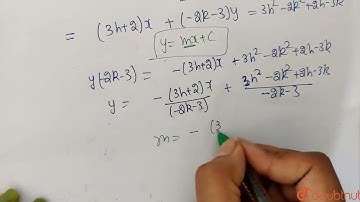 = (3h+2)x + (-2k-3)y = 3h²-2k²+2h-3k
y = mx+c
y(-2k-3) = -(3h+2)x + 3h²-2k²+2h-3k
y = -(3h+2)x/(-2k-3) + 3h²-2k²+2h-3k/-2k-3
m = - (3